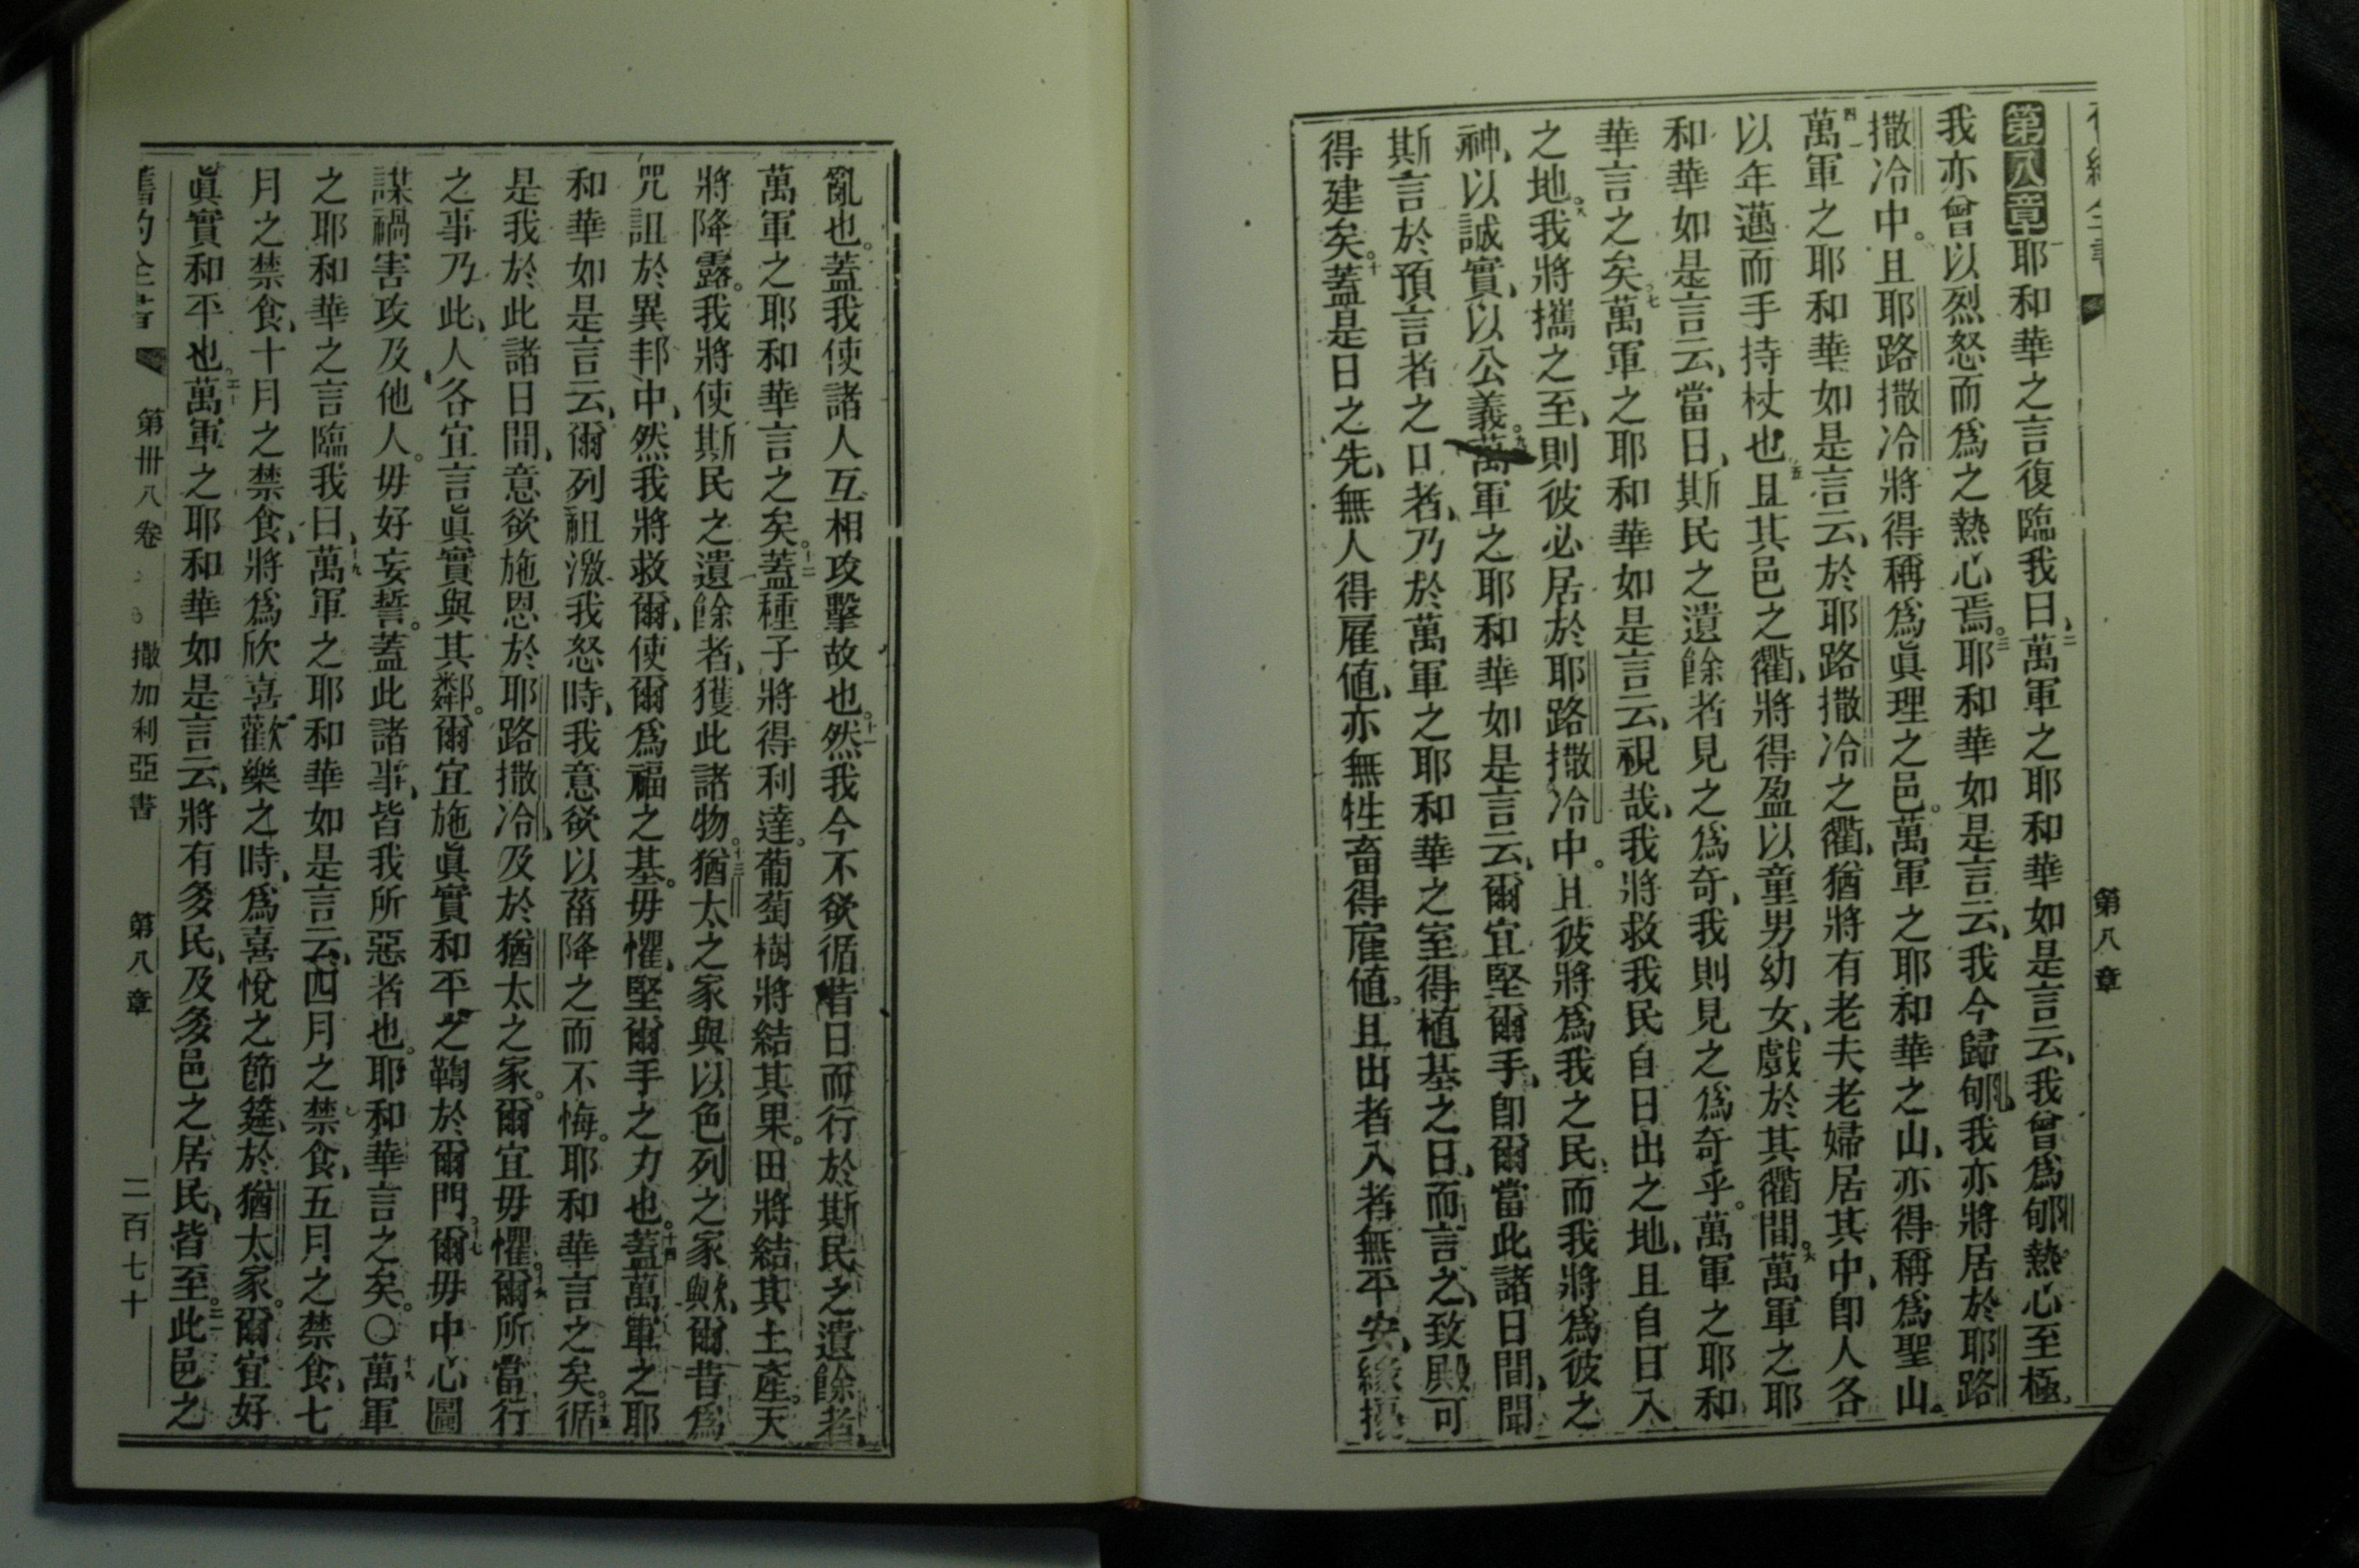 第八章
第八章耶和華之言復臨我曰、二萬軍之耶和華如是言云、我曾爲郇熱心至極、
我亦曾以烈怒而爲之熱心焉。三耶和華如是言云、我今歸郇、我亦將居於耶路
撒冷中。且耶路撒冷將得稱爲眞理之邑。萬軍之耶和華之山、亦得稱爲聖山。
四萬軍之耶和華如是言云、於耶路撒冷之衢、猶將有老夫老婦居其中、卽人各
以年邁而手持杖也五且其邑之衢、將得盈以童男幼女、戲於其衢間。六萬軍之耶
和華如是言云、當日、斯民之遺餘者見之爲奇、我則見之爲奇乎。萬軍之耶和
華言之矣。七萬軍之耶和華如是言云、視哉、我將救我民自日出之地、且自日入
之地。八我將攜之至、則彼必居於耶路撒冷中。且彼將爲我之民、而我將爲彼之
神、以誠實、以公義。九萬軍之耶和華如是言云、爾宜堅爾手、卽爾當此諸日間、聞
斯言於預言者之口者、乃於萬軍之耶和華之室得植基之日、而言之、致殿可
得建矣。十蓋是日之先、無人得雇値、亦無牲畜得雇値。且出者入者無平安、緣擾
亂也。蓋我使諸人互相攻擊故也。十一然我今不欲循昔日而行於斯民之遺餘者、
萬軍之耶和華言之矣。十二蓋種子將得利達。葡萄樹將結其果。田將結其土產。天
將降露。我將使斯民之遺餘者、獲此諸物。十三猶太之家與以色列之家歟、爾昔爲
咒詛於異邦中、然我將救爾、使爾爲福之基。毋懼、堅爾手之力也。十四蓋萬軍之耶
和華如是言云、爾列祖激我怒時、我意欲以菑降之而不悔。耶和華言之矣。十五循
是我於此諸日間、意欲施恩於耶路撒冷、及於猶太之家。爾宜毋懼。十六爾所當行
之事乃此、人各宜言眞實與其鄰。爾宜施眞實和平之鞫於爾門。十七爾毋中心圖
謀禍害攻及他人。毋好妄誓。蓋此諸事、皆我所惡者也。耶和華言之矣。〇十八萬軍
之耶和華之言臨我曰、十九萬軍之耶和華如是言云、四月之禁食、五月之禁食、七
月之禁食、十月之禁食、將爲欣喜歡樂之時、爲喜悅之節筵、於猶太家。爾宜好
眞實和平也。二十萬軍之耶和華如是言云、將有多民、及多邑之居民、皆至。二一此邑之
舊約全書 第卅八卷 撒加利亞書 第八章 二百七十